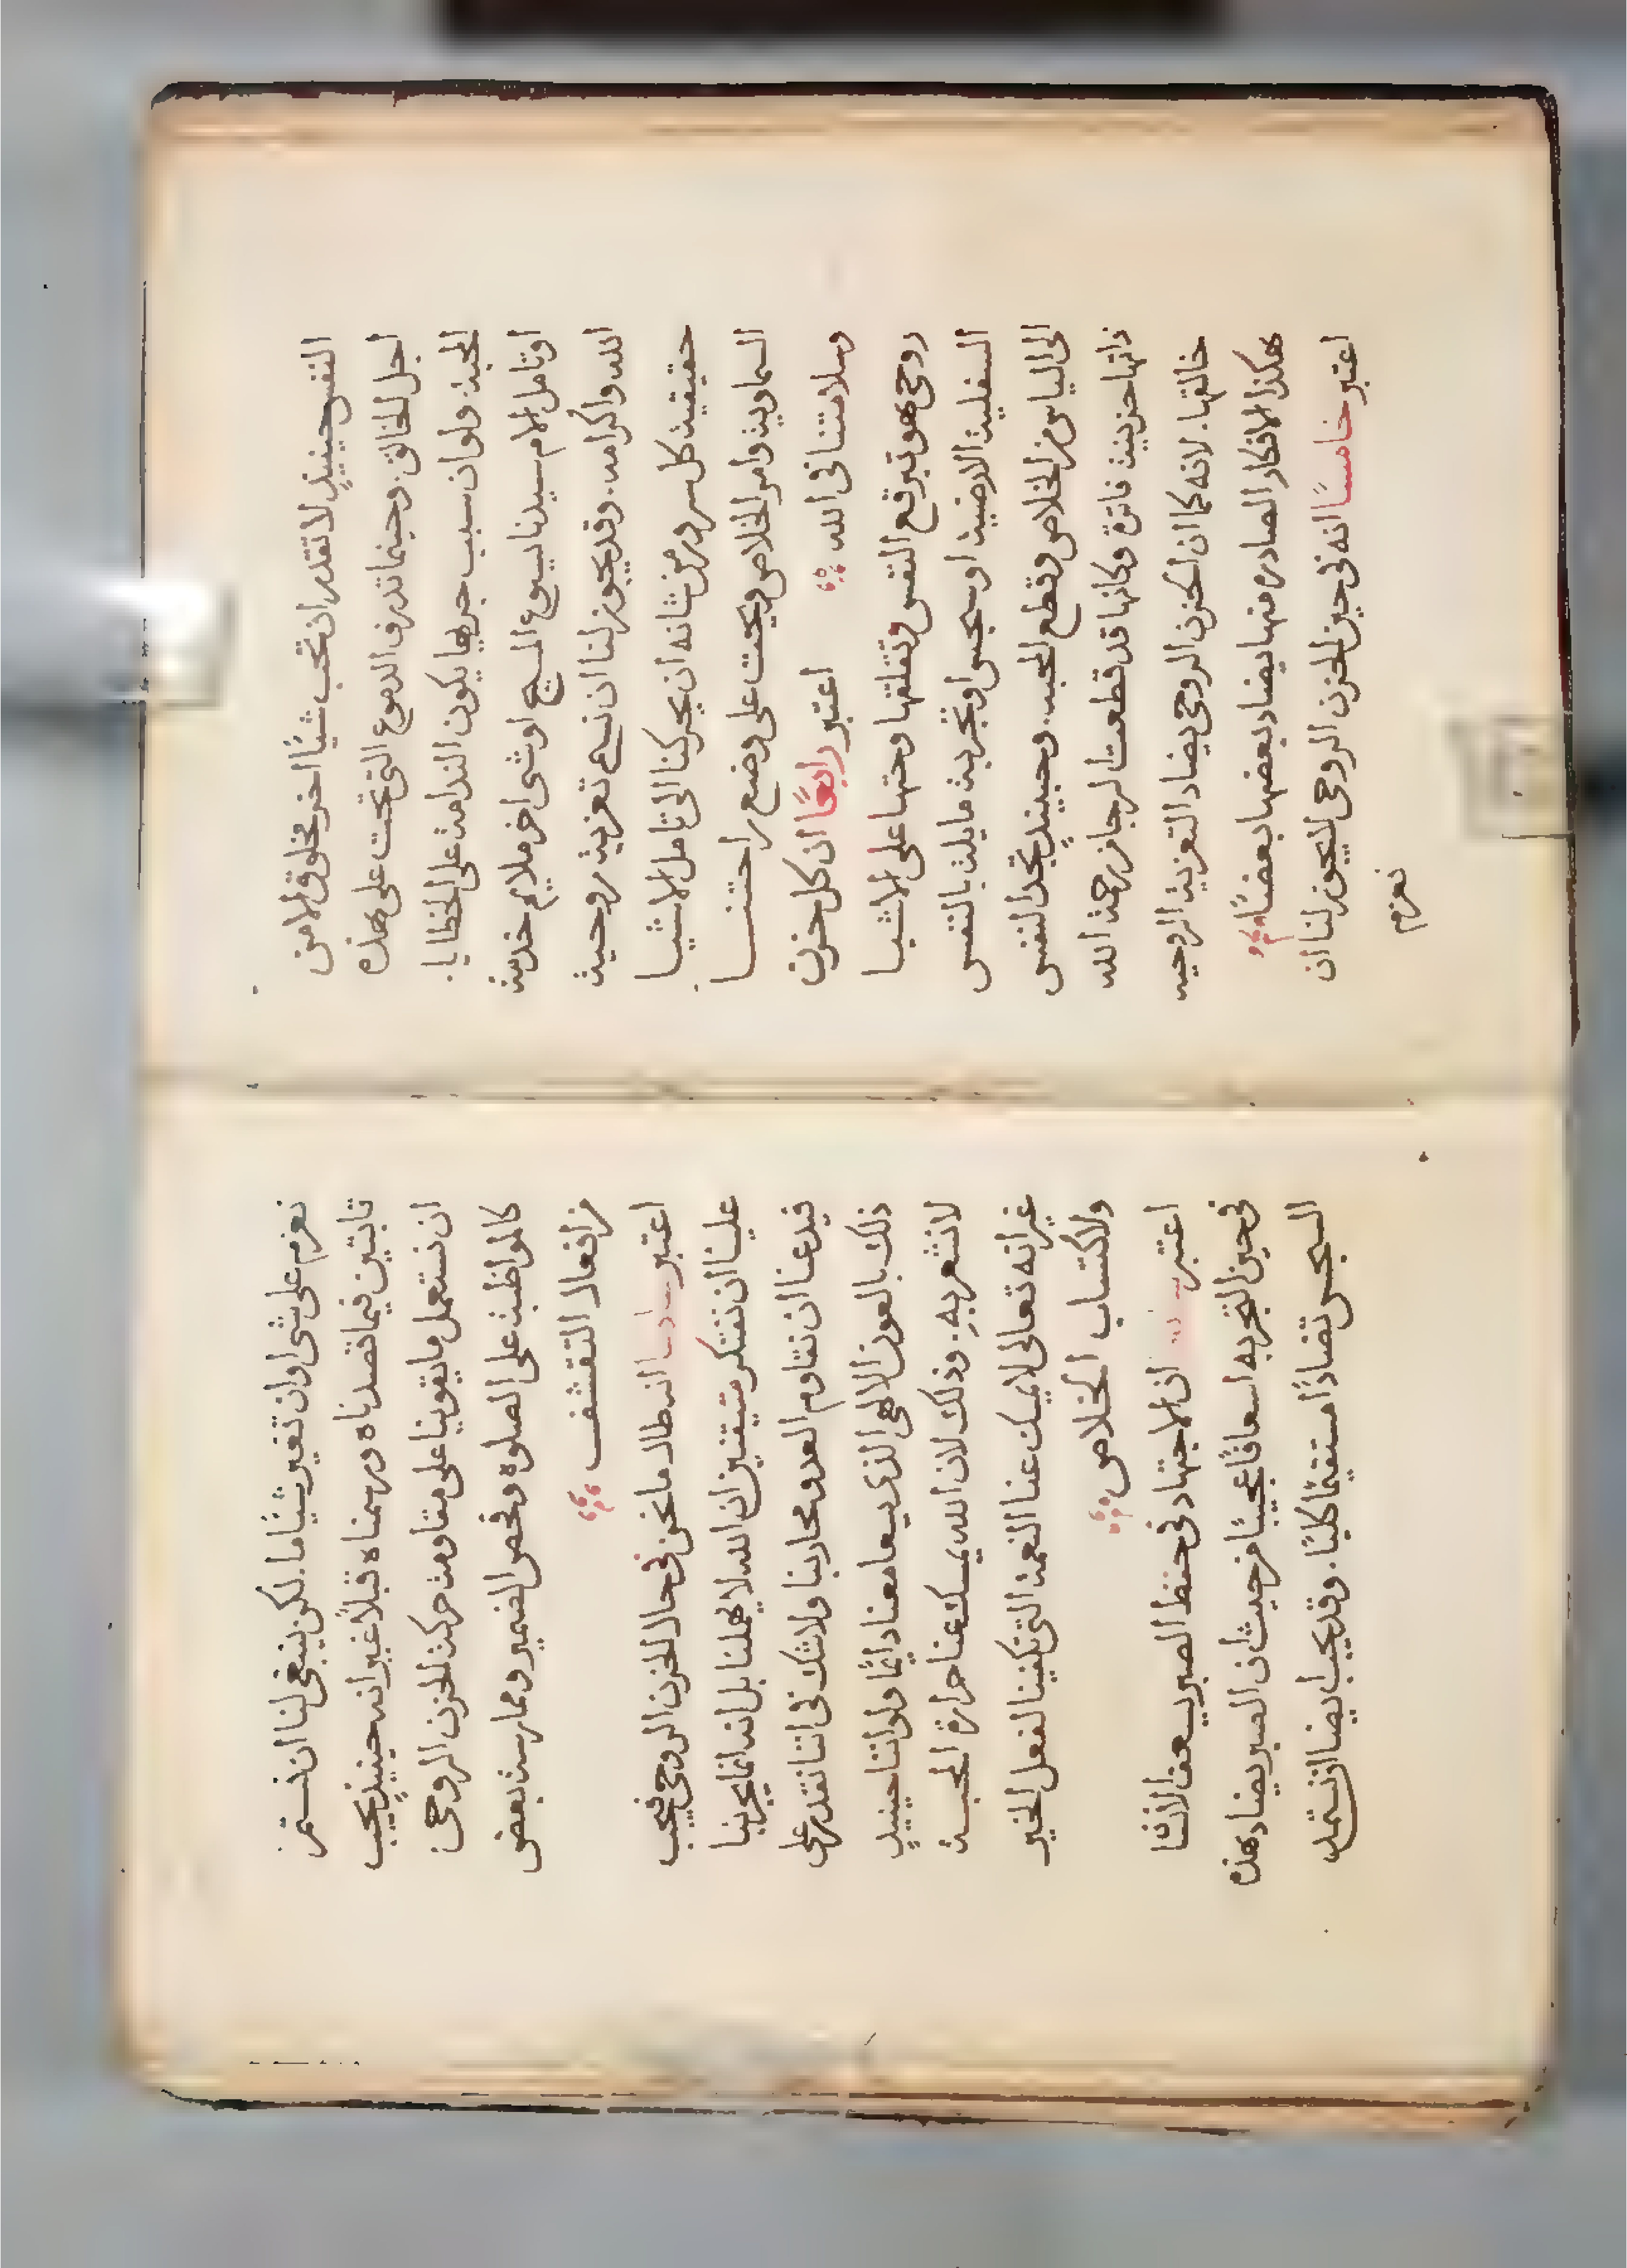 النفس حينيذٍ لا تقدر ان تحب شيًا اخر مخلوق الا من
اجل الخالق. وحينما تدرف الدموع التي تحت على هذه
المحبة. ولو ان سبب جريها يكون الندامة على الخطايا.
او تامل الام سيدنا يسوع المسيح او شي اخر ملايم خدمة
الله واكرامه. وقد يجوز لنا ان نسمي تعزية روحية
حقيقية كل سرور من شانه ان يحركنا الى تامل الاشيا
السماوية وامر الخلاص ويحت على وضع راحتنا
وسلامتنا في الله
اعتبر رابعًا ان كل حزن
روحي هو تبرقع النفس وتقلقها وحتها على الاشيا
السفلية الارضية او سجس او تجربة مايلة بالنفس
الى الياس من الخلاص وقطع المحبه. وحينيذٍ تجد النفس
ذاتها حزينة فاترة وكانها قد قطعت الرجا من رحمة الله
خالقها. لانه كما ان الحزن الروحي يضاد التعزية الروحيه
هكذا الافكار الصادره منها يضاد بعضها بعضًا
اعتبر خامسًا انه في حين الحزن الروحي لا يجوز لنا ان
نعزم
نعزم على شي اوان تغير شيًا ما. لكن ينبغي لنا ان نستمر
تابتين فيما قصدناه ورسمناه قبلًا غير انه حينيذٍ يجب
ان نستعمل ما يقوينا على مقاومة حركة الحزن الروحي
كالمواظبة على الصلوه وفحص الضمير وممارسة بعض
من افعال التقشف
اعتبر سادسا انه طالما نحن في حال الحزن الروحي فيجب
علينا ان نفتكر متيقنين ان الله لا يهملنا بل انه انما يجربنا
فيدعنا ان نقاوم العدو محاربنا ولا شك في اننا نقدر على
ذلك بالعون الالهي الذي يسعا معنا دايمًا ولو اننا حينيذٍ
لا نشعر به. وذلك لان الله يمسك عنا حرارة المحبة
غير انه تعالى لا يمسك عنا النعمة التي تكفينا لفعل الخير
ولاكتساب الخلاص
اعتبر ان الاجتهاد في حفظ الصبر يسعف الانسا
في حين التجربه اسعافًا عجيبًا من حيث ان الصبر يضاد هذه
السجس تضادًا مستقيمًا كليًا. وقد يجب ايضا ان نستعمل